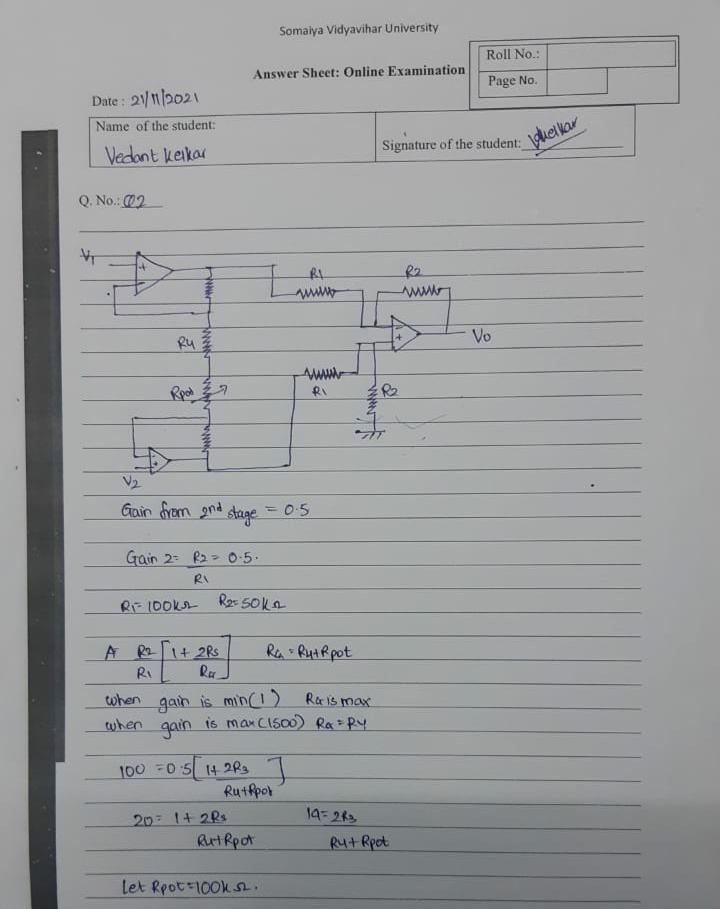 Somaiya Vidyavihar University
Answer Sheet: Online Examination
Roll No.:
Page No.
Date : 21/11/2021
Name of the student:
Vedant Kelkar
Signature of the student: Vkelkar
Q. No.: Q2
V1
+
R1
R2
R4
-
+
Vo
Rpot
R1
R2
+
V2
Gain from 2nd stage = 0.5
Gain 2 = R2 = 0.5.
R1
R1 = 100kΩ R2 = 50kΩ
A R2 [1 + 2R3] RG = R4 + Rpot
R1 RG
when gain is min(1) RG is max
when gain is max(1500) RG = R4
100 = 0.5 [1 + 2R3]
R4+Rpot
20 = 1 + 2R3 19 = 2R3
R4+Rpot R4 + Rpot
Let Rpot = 100kΩ.